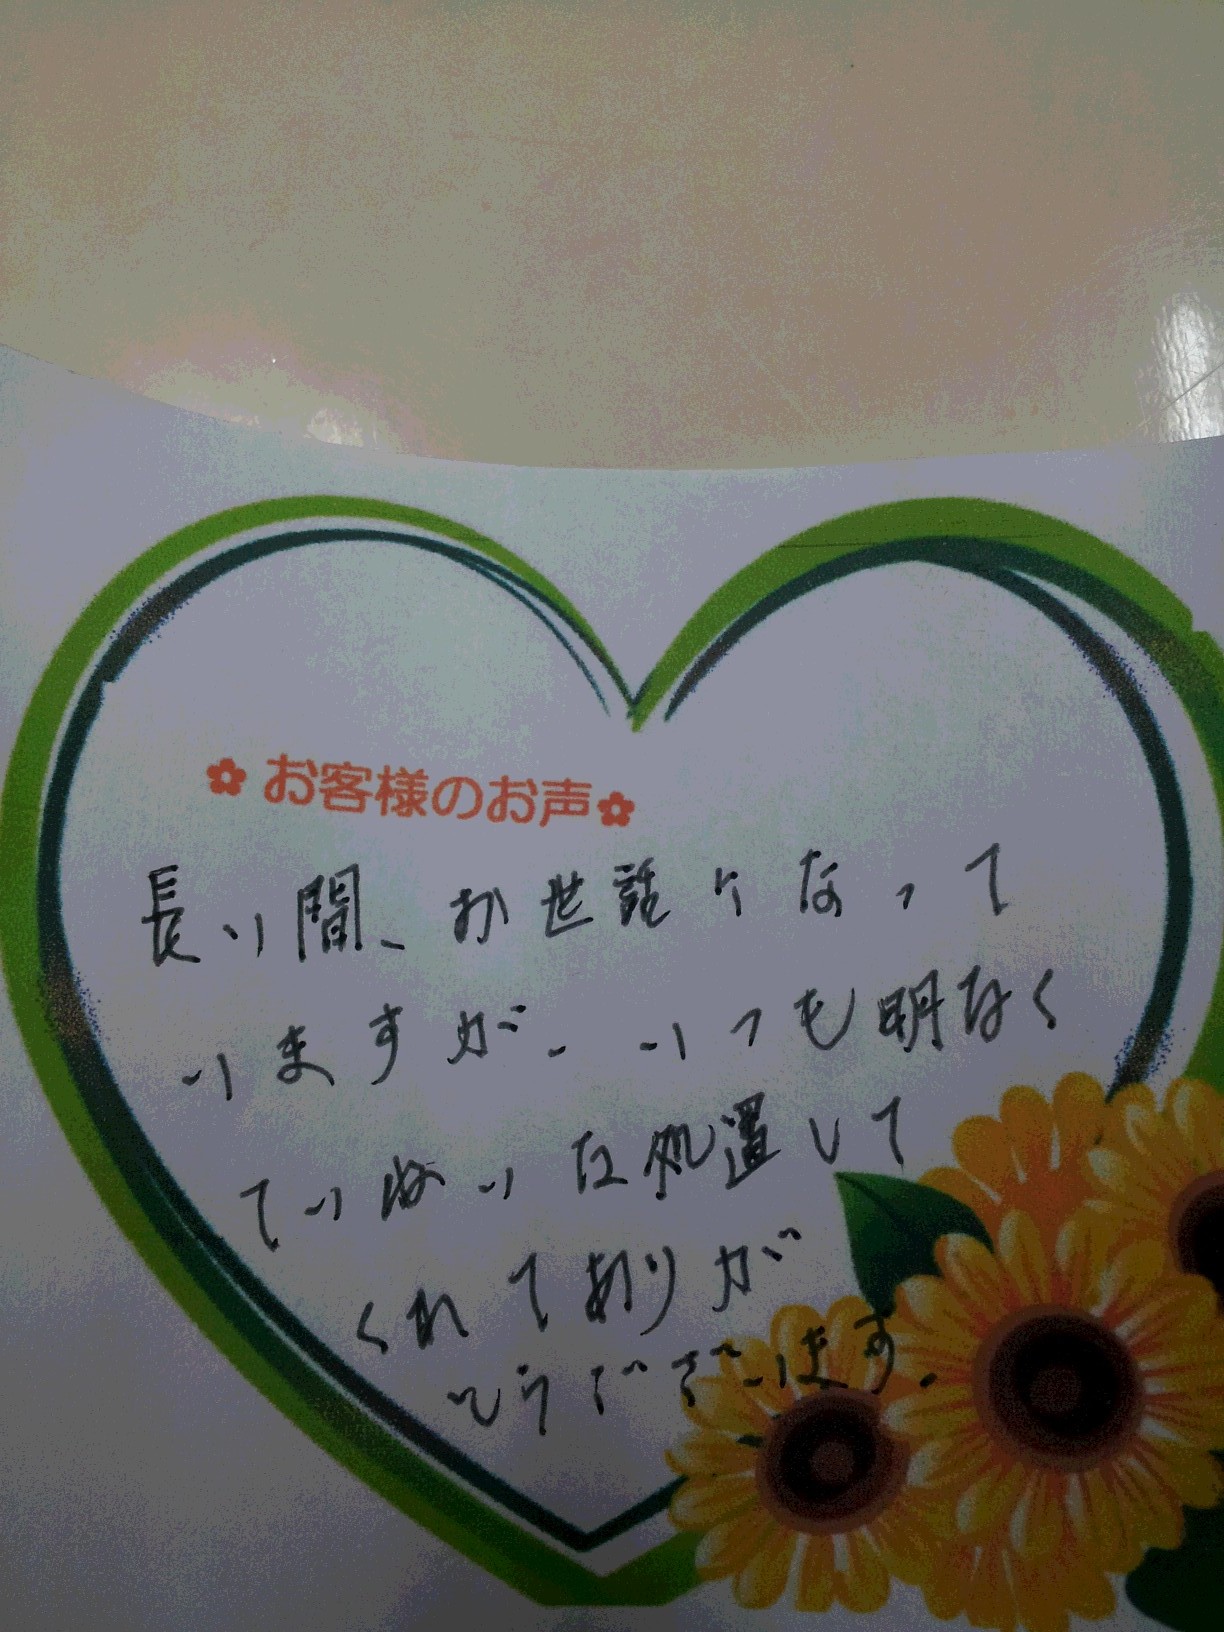 お客様のお声
長い間、お世話になって
いますが、いつも明なく
ていねいな処置して
くれてありが
とうございます。